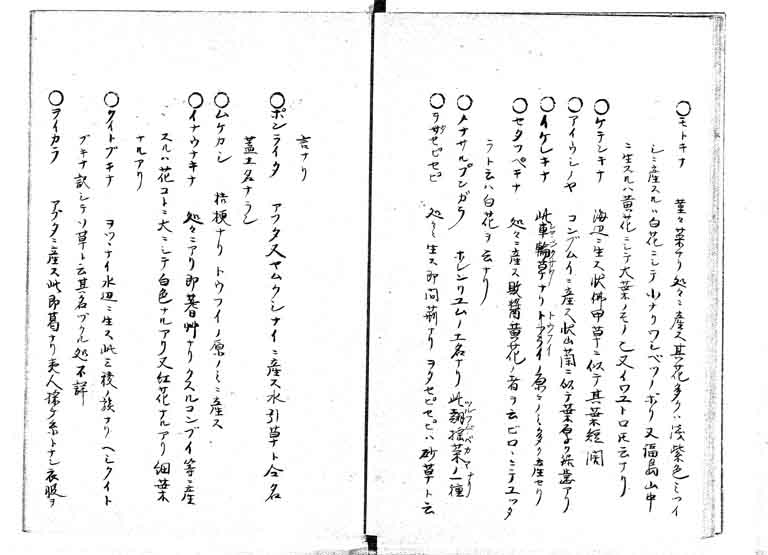 ○モトキナ 菫々菜ナリ処々ニ産ス其花多クハ浅紫色ミツイ
シニ産スルハ白花ニシテ小ナリワシベツノボリ又福島山中
ニ生スルハ黄花ニシテ大葉ノモノ乙又イワエトロ氏云ナリ
○ケテンキナ 海辺ニ生ス状佛甲草ニ似テ其葉短闊
○アイウシノヤ コンブムイニ産ス状山蘭ニ似テ葉厚ク鋸歯アリ
○イケレキナ 此車輪草ナリトアライノ原ニノミ多ク産セリ
トウフイ
○セタフペキナ 処々ニ産ス敗醤黄花ノ者ヲ云ビロニニテエツタ
ラト云ハ白花ヲ云ナリ
○メナサルプンガラ ホレンリユムノ土名ナリ此翻揺菜ノ一種
○ヲサセピセピ 処々ニ生ス即同荊ナリヲタセピセピハ砂草ト云
言ナリ
○ポンライタ アフタ又ヤムクシナイニ産ス水引草ナト全名
蓋土名ナラン
○ムケカシ 桔梗ナリトウフイノ原ノミニ産ス
○イナウナキナ 処々ニアリ即蓍艸ナリクスルコンブイ等ニ産
スルハ花コトニ大ニシテ白色ナルアリ又紅花ナルアリ細葉
ナルアリ
○クイトブキナ ヲツナイ水辺ニ生ス此三稜ノ族ナリヘンクイト
ブキナ訳シテソ草ト云其名ヅクル処不詳
○ヲイカラ アブタニ産ス此即葛ナリ夷人採ケ糸トナシ衣服ヲ